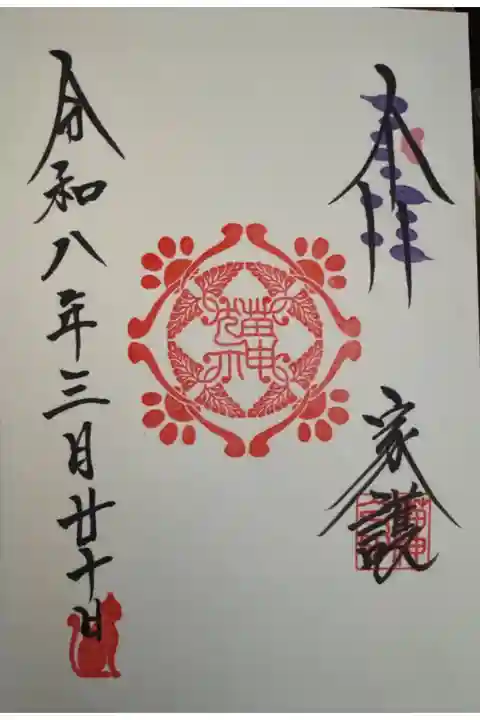 奉拝
家護
猫神
令和八年三月廿十日